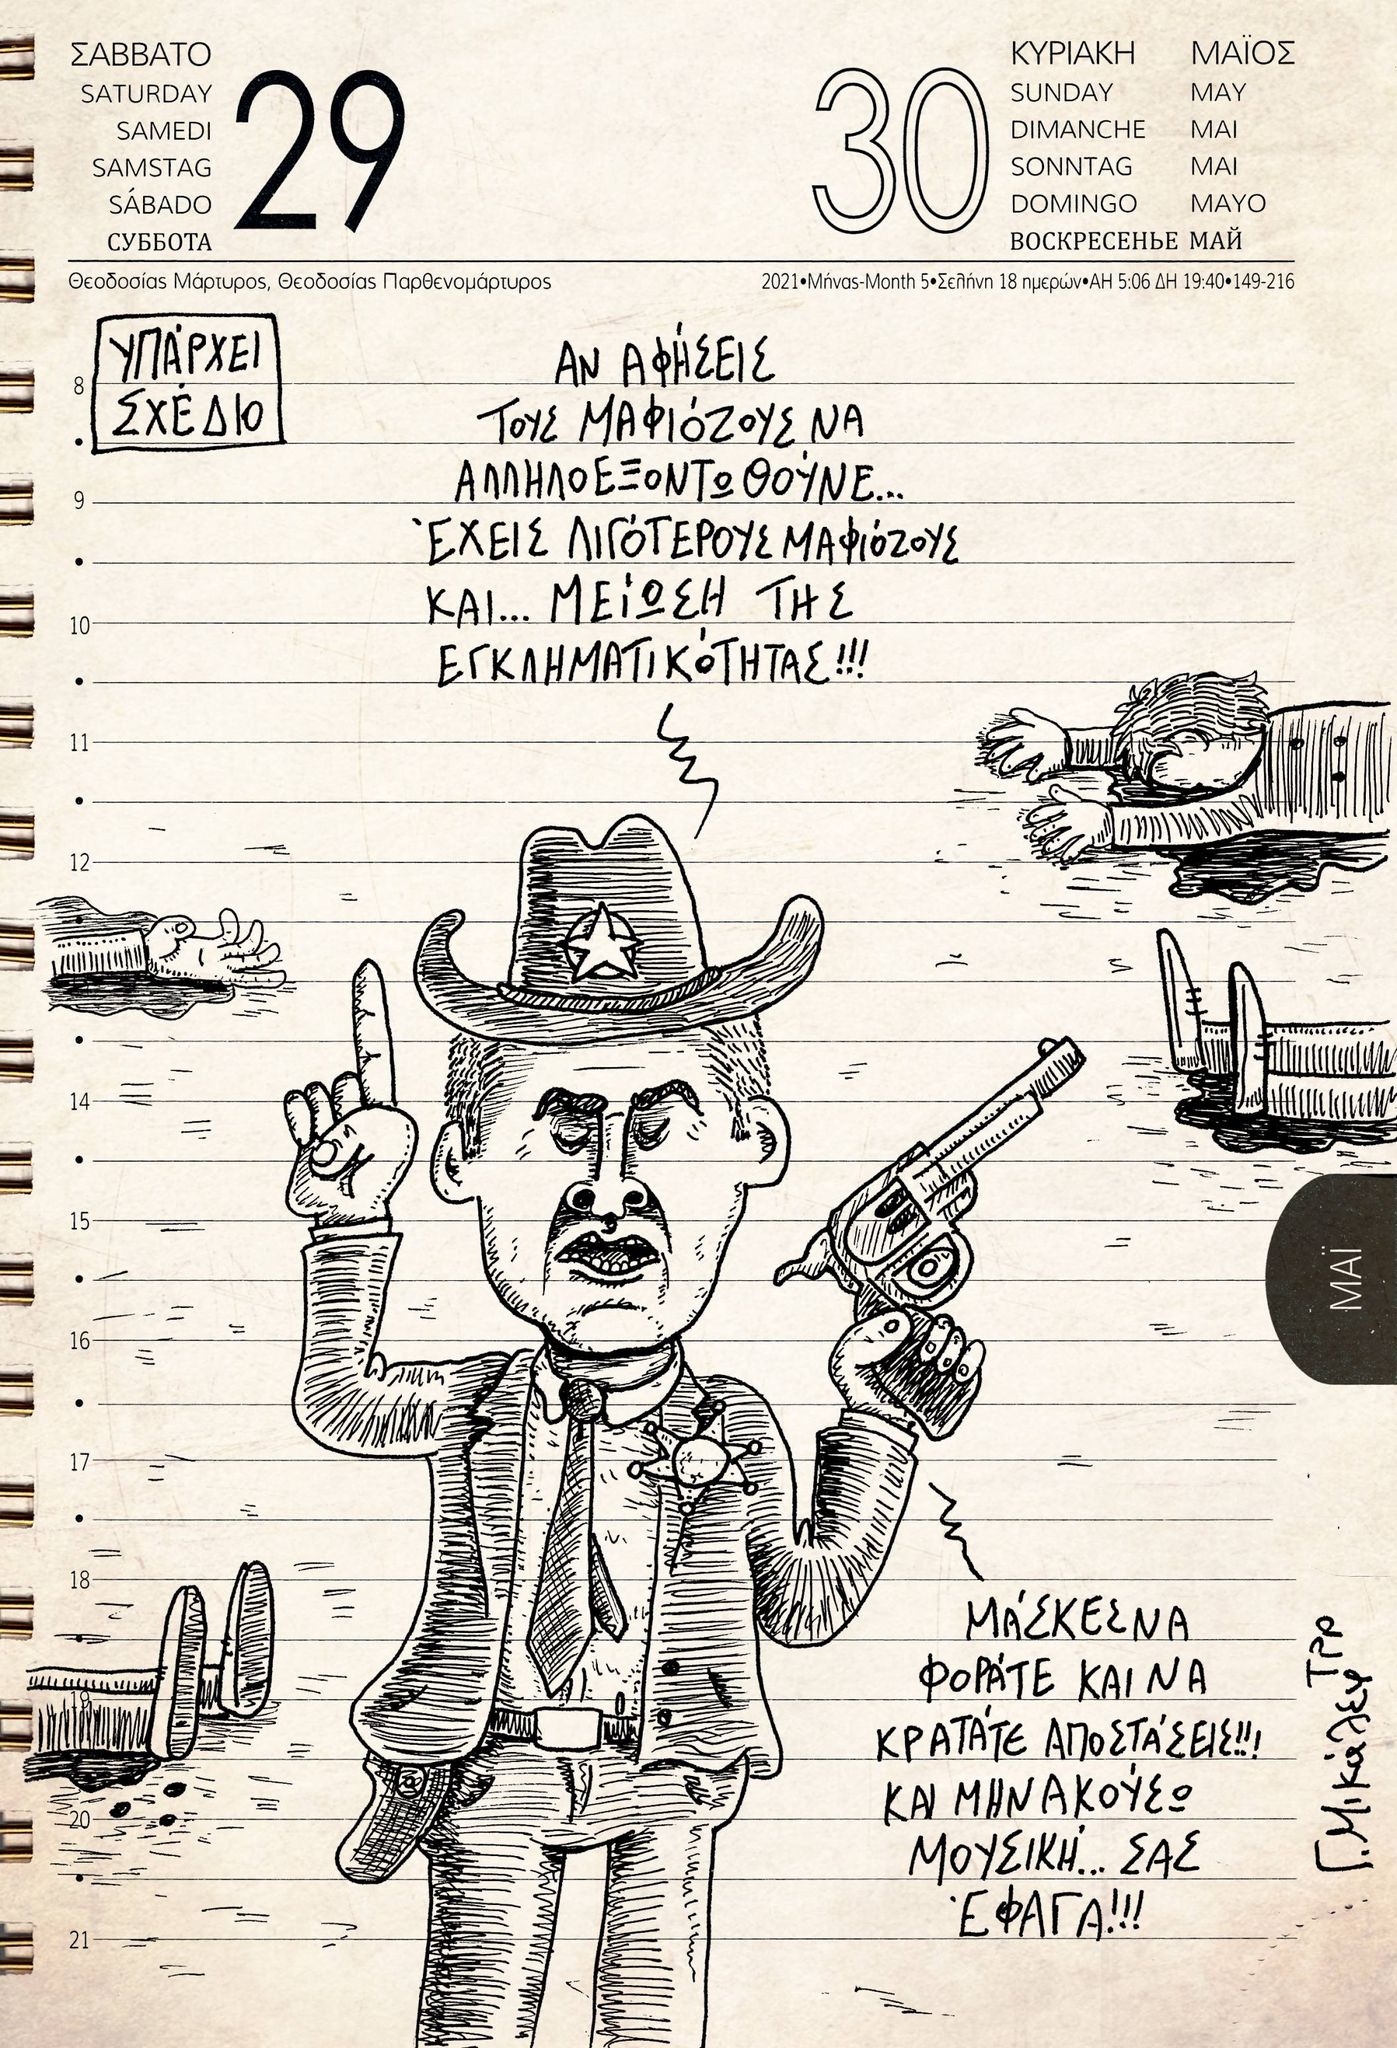 ΣΑΒΒΑΤΟ
SATURDAY
SAMEDI
SAMSTAG
SÁBADO
СУББОТА
29
30
ΚΥΡΙΑΚΗ ΜΑΪΟΣ
SUNDAY MAY
DIMANCHE MAI
SONNTAG MAI
DOMINGO MAYO
ВОСКРЕСЕНЬЕ МАЙ
Θεοδοσίας Μάρτυρος, Θεοδοσίας Παρθενομάρτυρος
2021•Μήνας-Month 5•Σελήνη 18 ημερών•ΑΗ 5:06 ΔΗ 19:40•149-216
ΥΠΆΡΧΕΙ
ΣΧΈΔΙΟ
ΑΝ ΑΦΉΣΕΙΣ
ΤΟΥΣ ΜΑΦΙΌΖΟΥΣ ΝΑ
ΑΛΛΗΛΟΕΞΟΝΤΩΘΟΎΝΕ...
ΈΧΕΙΣ ΛΙΓΌΤΕΡΟΥΣ ΜΑΦΙΌΖΟΥΣ
ΚΑΙ... ΜΕΊΩΣΗ ΤΗΣ
ΕΓΚΛΗΜΑΤΙΚΌΤΗΤΑΣ!!!
8
9
10
11
12
14
15
16
17
18
19
20
21
ΜΑΪ
ΜΆΣΚΕΣ ΝΑ
ΦΟΡΆΤΕ ΚΑΙ ΝΑ
ΚΡΑΤΆΤΕ ΑΠΟΣΤΆΣΕΙΣ!!!
ΚΑΙ ΜΗΝ ΑΚΟΎΣΩ
ΜΟΥΣΙΚΉ... ΣΑΣ
ΈΦΑΓΑ!!!
Γ. Μικάλεφ